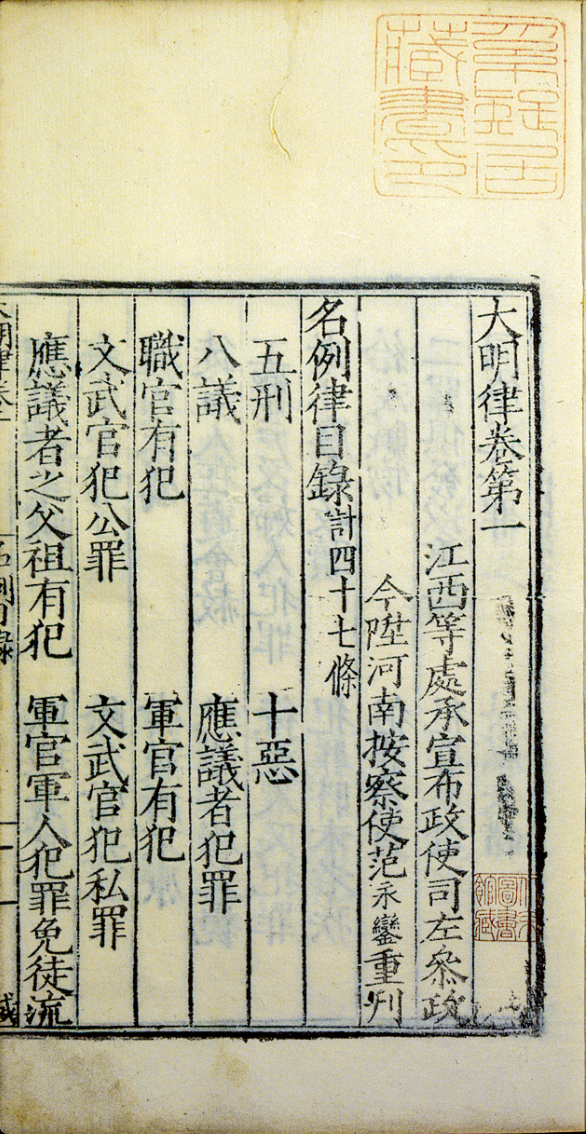 大明律卷第一
江西等處承宣布政使司左叅政
今陞河南按察使范永鑾重刋
名例律目錄計四十七條
五刑 十惡
八議 應議者犯罪
職官有犯 軍官有犯
文武官犯公罪 文武官犯私罪
應議者之父祖有犯 軍官軍人犯罪免徒流
大明律卷一
名例目錄
藏書印
圖書
館藏